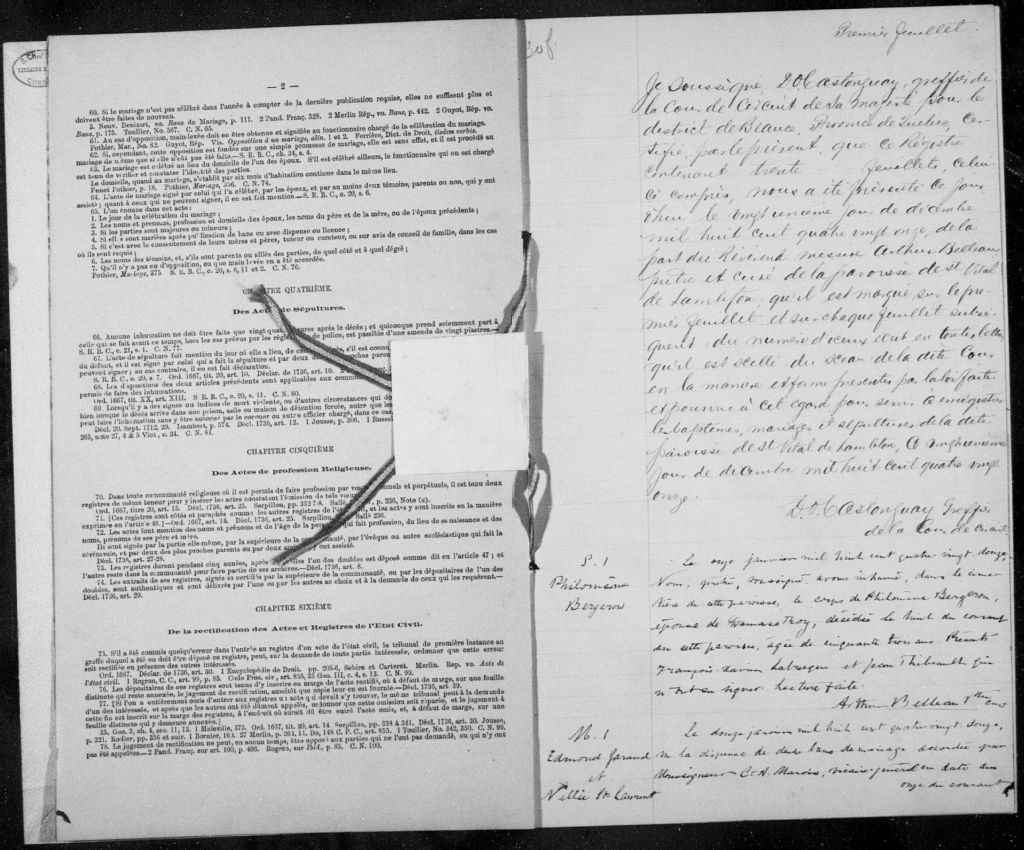 — 2 —
60. Si le mariage n'est pas célébré dans l'année à compter de la dernière publication requise, elles ne suffisent plus et
doivent être faites de nouveau.
3. Nouv. Denizart, vo. Bans de Mariage, p. 111. 2 Pand. Franç. 328. 2 Merlin Rép., vo. Bans, p. 442. 2 Guyot, Rép. vo.
Bans, p. 175. Toullier, No. 567. C. N. 65.
61. Au cas d'opposition, main-levée doit en être obtenue et signifiée au fonctionnaire chargé de la célébration du mariage.
Pothier, Mar., No. 82. Guyot, Rép. Vis. Opposition à un mariage, alin. 1 et 2. Ferrière, Dict. de Droit, iisdem verbis.
62. Si, cependant, cette opposition est fondée sur une simple promesse de mariage, elle est sans effet, et il est procédé au
mariage de même que si elle n'eût pas été faite.—S. R. B. C., ch. 34, s. 4.
63. Le mariage est célébré au lieu du domicile de l'un des époux. S'il est célébré ailleurs, le fonctionnaire qui en est chargé
est tenu de vérifier et constater l'identité des parties.
Le domicile, quand au mariage, s'établit par six mois d'habitation continue dans le même lieu.
Fenet Pothier, p. 18. Pothier, Mariage, 356. C. N. 74.
64. L'acte de mariage signé par celui qui l'a célébré, par les époux, et par au moins deux témoins, parents ou non, qui y ont
assisté; quant à ceux qui ne peuvent signer, il en est fait mention—S. R. B. C., c. 20, s. 6.
65. L'on énonce dans cet acte:
1. Le jour de la célébration du mariage;
2. Les noms et prénoms, profession et domicile des époux, les noms du père et de la mère, ou de l'époux précédente;
3. Si les parties sont majeures ou mineures;
4. Si elles sont mariées après publication de bans ou avec dispense ou licence;
5. Si c'est avec le consentement de leurs mères et pères, tuteur ou curateur, ou sur avis de conseil de famille, dans les cas
où ils sont requis;
6. Les noms des témoins, et, s'ils sont parents ou alliés des parties, de quel côté et à quel dégré;
7. Qu'il n'y a pas eu d'opposition, ou que main levée en a été accordée.
Pothier, Mariage, 375. S. R. B. C., c. 20, s. 6, §1 et 2. C. N. 76.
CHAPITRE QUATRIÈME.
Des Actes de Sépultures.
66. Aucune inhumation ne doit être faite que vingt-quatre heures après le décès; et quiconque prend sciemment part à
celle qui se fait avant ce temps, hors les cas prévus par les règlements de police, est passible d'une amende de vingt piastres.—
S. R. B. C., c. 21, s. 1. C. N. 77.
67. L'acte de sépulture fait mention du jour où elle a lieu, de
du défunt, et il est signé par celui qui a fait la sépulture et par deux
peuvent signer; au cas contraire, il en est fait déclaration.
S. R. B. C., c. 20, s. 7. Ord. 1667, tit. 20, art. 10. Déclar. de 1736, art. 10.
68. Les dispositions des deux articles précédents sont applicables aux
permis de faire des inhumations.
Ord. 1667, tit. XX, art. XIII. S. R. B. C., c. 20, s. 11. C. N. 80.
69. Lorsqu'il y a des signes ou indices de mort violente, ou d'autres circonstances qui
bien lorsque le décès arrive dans une prison, asile ou maison de détention forcée, autre que les
peut faire l'inhumation sans y être autorisé par le coroner ou autre officier chargé, dans ce cas,
Décl. 20 Sept. 1712, 20. Isambert, p. 574. Décl. 1736, art. 12. 1 Jousse, p. 306. 1 Russel
265, note 27, 4 & 5 Vict., c. 24. C. N. 81.
CHAPITRE CINQUIÈME
Des Actes de profession Religieuse.
70. Dans toute communauté religieuse où il est permis de faire profession par vœux solennels et perpétuels, il est tenu deux
registres de même teneur pour y insérer les actes constatant l'émission de tels vœux.
Ord. 1667, titre 20, art. 15. Décl. 1736, art. 25. Serpillon, pp. 332 7-8. Sallé, p. 236, Note (a).
71. [Ces registres sont côtés et paraphés comme les autres registres de l'état civil, et les actes y sont inscrits en la manière
exprimée en l'article 46.]—Ord. 1667, art. 18. Décl. 1736, art. 25. Serpillon, Sallé 236.
72. Les actes font mention des noms et prénoms et de l'âge de la personne qui fait profession, du lieu de sa naissance et des
noms, prénoms de ses père et mère.
Ils sont signés par la partie elle-même, par la supérieure de la communauté, par l'évêque ou autre ecclésiastique qui fait la
cérémonie, et par deux des plus proches parents ou par deux amis qui y ont assisté.
Décl. 1736, art. 27-28.
73. Les registres durent pendant cinq années, après lesquelles l'un des doubles est déposé comme dit en l'article 47; et
l'autre reste dans la communauté pour faire partie de ses archives.—Décl. 1736, art. 8.
74. Les extraits de ses registres, signés et certifiés par la supérieure de la communauté, ou par les dépositaires de l'un des
doubles, sont authentiques et sont délivrés par l'une ou par les autres au choix et à la demande de ceux qui les requèrent—
Décl. 1736, art. 29.
CHAPITRE SIXIÈME
De la rectification des Actes et Registres de l'Etat Civil.
75. S'il a été commis quelqu'erreur dans l'entrée au registre d'un acte de l'état civil, le tribunal de première instance au
greffe duquel a été ou doit être déposé ce registre, peut, sur la demande de toute partie intéressée, ordonner que cette erreur
soit rectifiée en présence des autres intéressés.
Ord. 1667. Déclar. de 1736, art. 30. 1 Encyclopédie de Droit. pp. 205-6, Sebire et Carteret. Merlin. Rep. vo. Acts de
l'état civil. 1 Rogron, C. C., art. 99, p. 85. Code Proc. civ., art. 855, 35 Geo. III, c. 4, s. 13. C. N. 99.
76. Les dépositaires de ces registres sont tenus d'y inscrire en marge de l'acte rectifié, où à défaut de marge, sur une feuille
distincte qui reste annexée, le jugement de rectification, aussitôt que copie leur en est fournie—Décl. 1736, art. 39.
77. [Si l'on a entièrement omis d'entrer aux registres un acte qui devait s'y trouver, le même tribunal peut à la demande
d'un des intéressés, et après que les autres ont été dûment appelés, ordonner que cette omission soit réparée, et le jugement à
cette fin est inscrit sur la marge des registres, à l'endroit où aurait dû être entré l'acte omis, et, à défaut de marge, sur une
feuille distincte qui y demeure annexée.]
35. Geo. 3, ch. 4, sec. 11, 13. 1 Maleville, 375. Ord. 1667, tit. 20, art. 14. Serpillon, pp. 338 à 341. Décl. 1736, art. 30. Jousse,
p. 321. Rodier, pp. 356 et suiv. 1 Bornier, 165. 27 Merlin, p. 265, 11. Do, 148 C. P. C., art. 855. 1 Toullier, No. 342, 350. C. N. 99.
78. Le jugement de rectification ne peut, en aucun temps, être opposé aux parties qui ne l'ont pas demandé, ou qui n'y ont
pas été appelées.—2 Pand. Franç. sur art. 100, p. 405. Rogron, sur Ibid., p. 85. C. N. 100.
Premier feuillet.
Je soussigné, D. O. Castonguay, greffier de
la Cour de Circuit de Sa Majesté pour le
district de Beauce, Province de Québec, cer-
tifie par le présent que ce Régistre
contenant trente feuillets, celui-
ci compris, nous a été présenté ce jour
le vingt unième jour de décembre
mil huit cent quatre vingt onze, de la
part du Révérend messire Arthur Belleau
prêtre et curé de la paroisse de St Vital
de Lambton; qu'il est marqué sur le pre-
mier feuillet et sur chaque feuillet subsé-
quent du numéro d'iceux écrit en toutes lettres
qu'il est scellé du sceau de la dite Cour
en la manière et forme prescrites par la loi faite
et pourvue à cet égard pour servir à enregistrer
les baptêmes, mariages et sépultures de la dite
paroisse de St Vital de Lambton, ce vingt unième
jour de décembre mil huit cent quatre vingt
onze.
D. O. Castonguay Greffier
de la Cour de Circuit
S. 1
Philomène
Bergeron
Le onze janvier mil huit cent quatre vingt douze,
Nous, prêtre, soussigné, avons inhumé, dans le cime-
tière de cette paroisse, le corps de Philomène Bergeron,
épouse de Damase Roy, décédée le huit du courant
en cette paroisse, âgée de cinquante trois ans. Présents
François-Xavier Labrecque et Jean Thibeault qui
n'ont su signer. Lecture faite.
Arthur Belleau Ptre Curé
M. 1
Edmond Garand
et
Nellie St Laurent
Le douze janvier mil huit cent quatre-vingt douze,
vu la dispense de deux bans de mariage accordée par
Monseigneur C. A. Marois, vicaire-général en date du
onze du courant